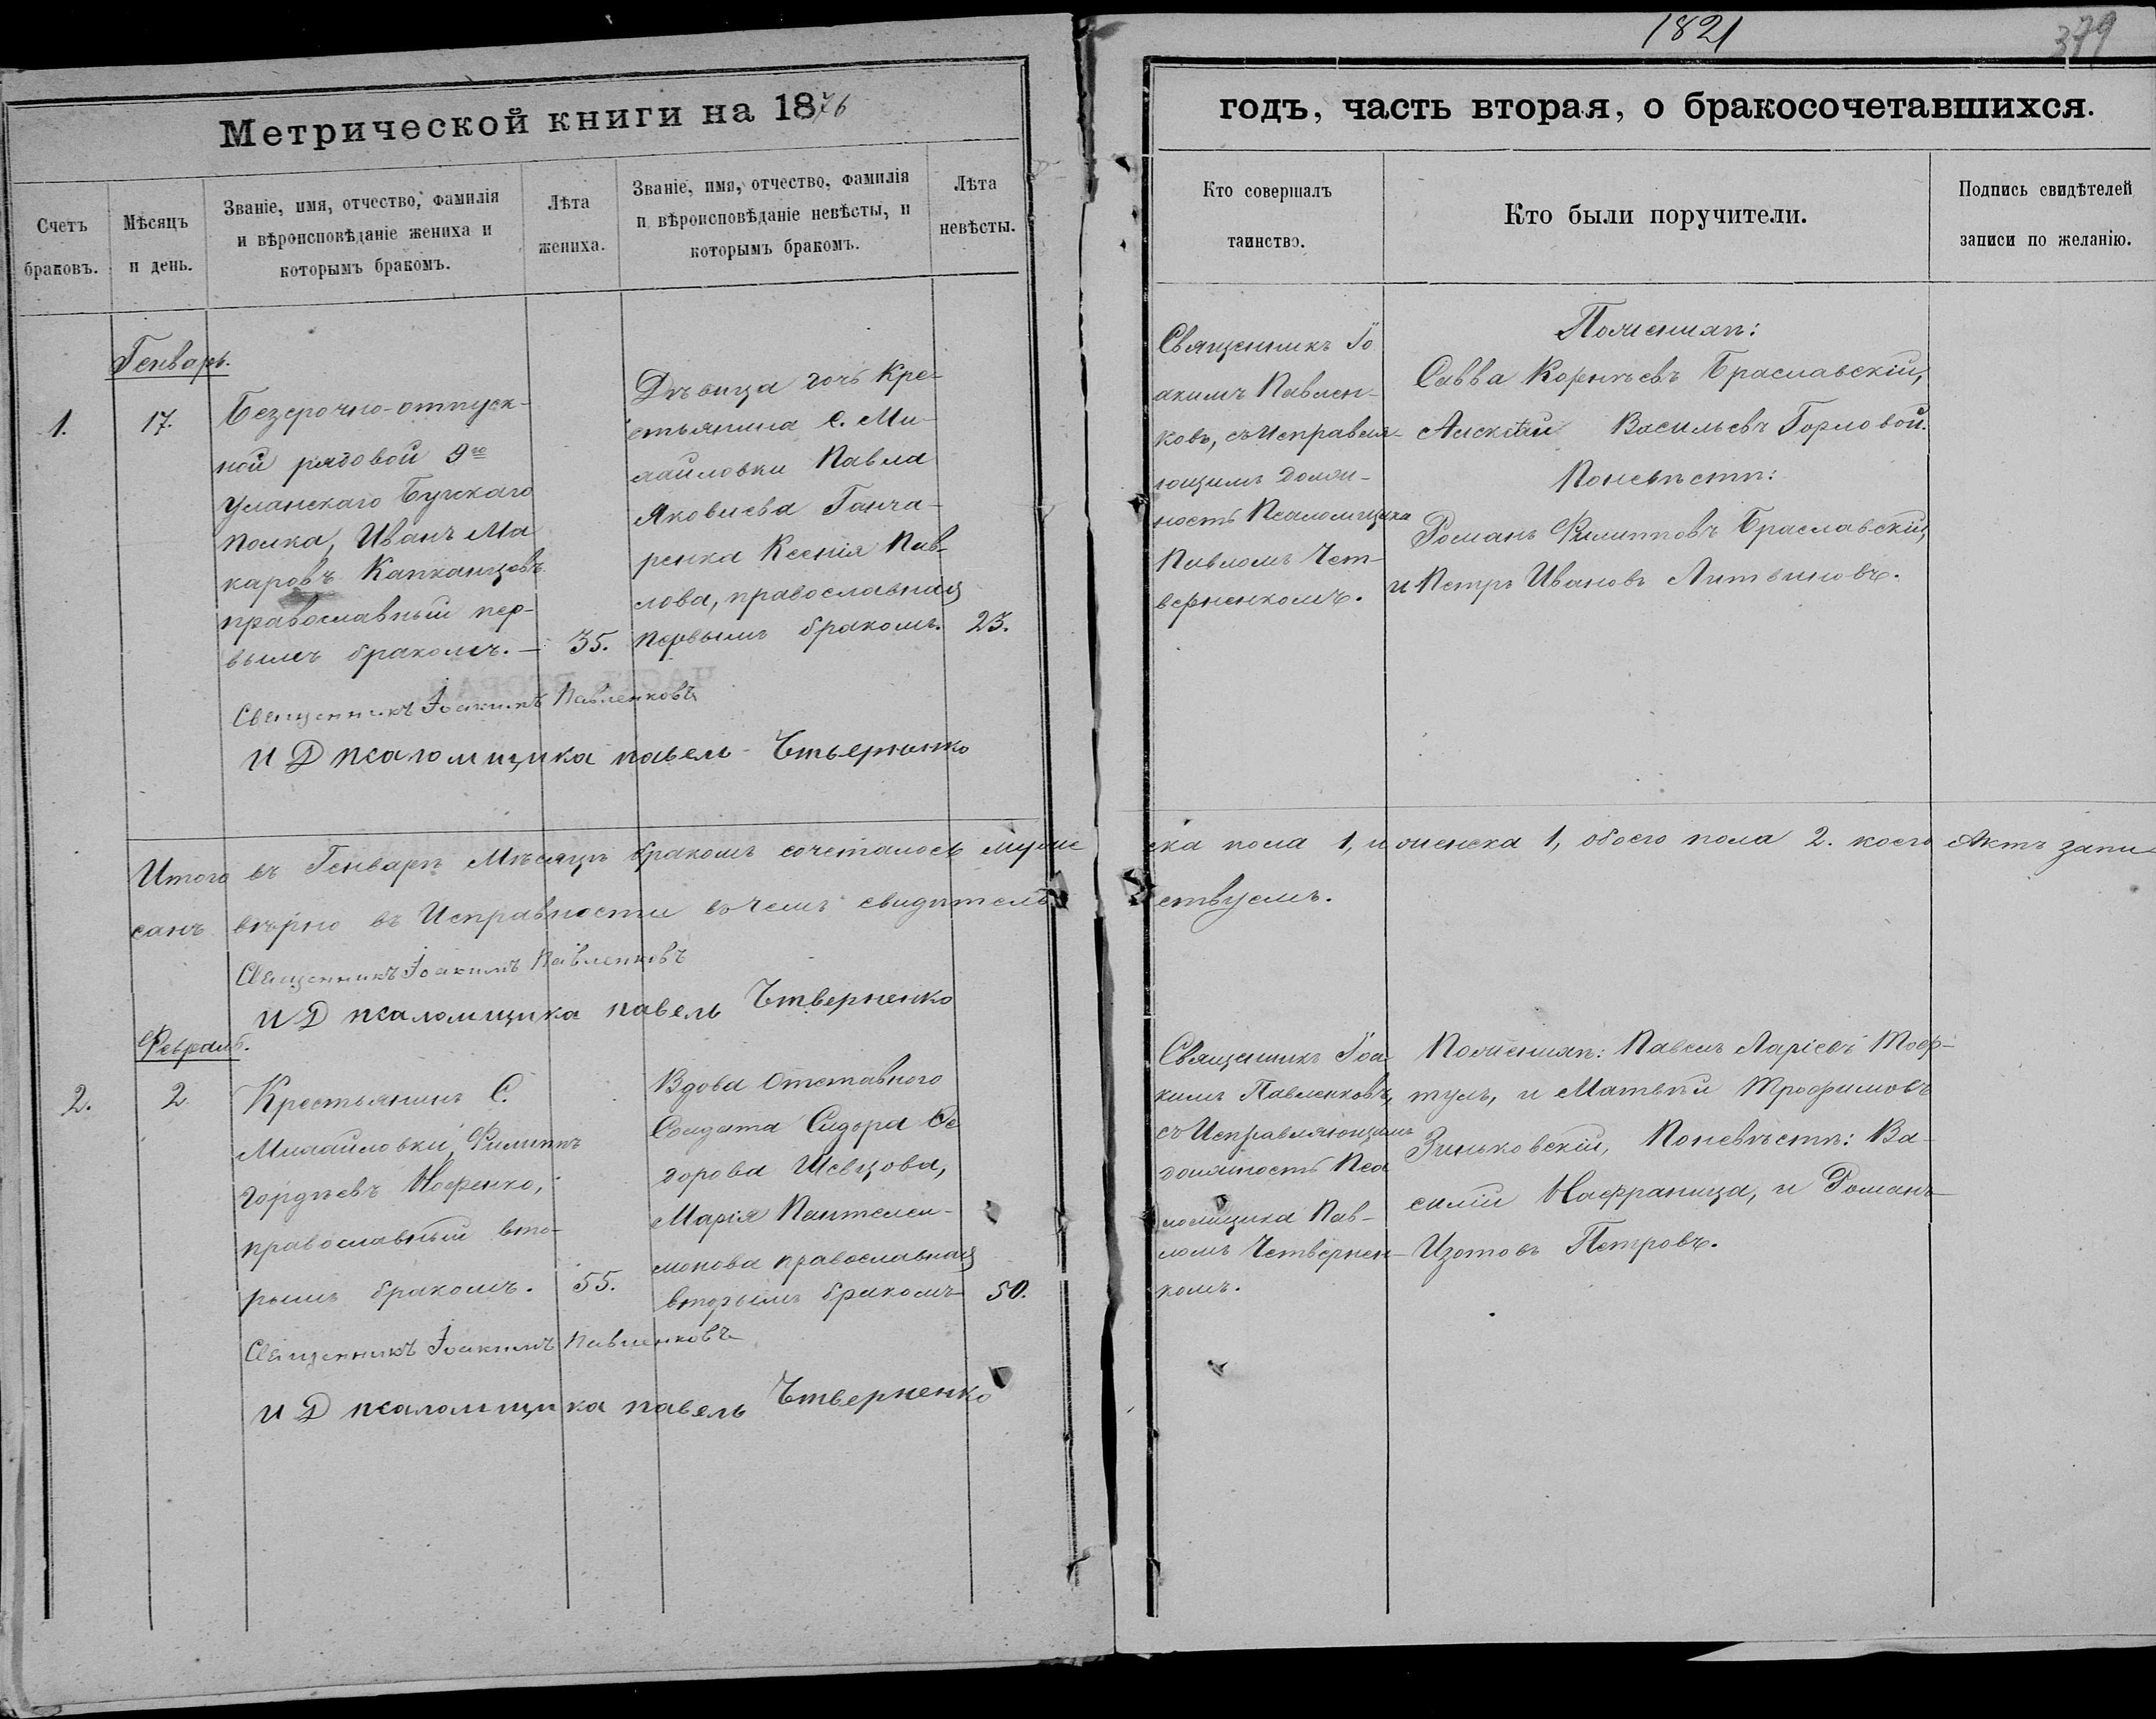 1821
379
Метрической книги на 1876
годъ, часть вторая, о бракосочетавшихся.
Счетъ
браковъ.
Мѣсяцъ
и день.
Званіе, имя, отчество, фамилія
и вѣроисповѣданіе жениха и
которымъ бракомъ.
Лѣта
жениха.
Званіе, имя, отчество, фамилія
и вѣроисповѣданіе невѣсты, и
которымъ бракомъ.
Лѣта
невѣсты.
Кто совершалъ
таинство.
Кто были поручители.
Подпись свидѣтелей
записи по желанію.
Генварь.
1.
17.
Безсрочно-отпуск-
ной рядовой 9го
Уланскаго Бугскаго
полка, Иванъ Ма
каровъ Капканцовъ
православный пер-
вымъ бракомъ. —
35.
Дѣвица дочь Кре-
стьянина С. Ми-
хайловки Павла
Яковлева Ганча-
ренка Ксенія Пав-
лова, православная
первымъ бракомъ.
23.
Священникъ Іо
акимъ Павлен-
ковъ, съ Исправля-
ющимъ долж-
ность Псаломщика
Павломъ Чет-
верненкомъ.
По женихѣ:
Савва Корнѣевъ Браславскій,
Алексѣй Васильевъ Горловой.
По невѣстѣ:
Романъ Филипповъ Браславскій,
и Петръ Ивановъ Литвиновъ.
Священникъ Іоакимъ Павленковъ
И Д псаломщика павелъ Чтверненко
Итого въ Генварѣ Мѣсяцѣ бракомъ сочеталось муже
ска пола 1, и женска 1, обоего пола 2. коего Актъ запи
санъ вѣрно въ Исправности въ чемъ свидѣтель
ствуемъ.
Священникъ Іоакимъ Павленковъ
И Д псаломщика павелъ Чтверненко
Февраль.
2.
2
Крестьянинъ С.
Михайловки, Филиппъ
Гордѣевъ Носенко,
православный вто-
рымъ бракомъ.
55.
Вдова Отставного
Солдата Сидора Ѳе
дорова Шевцова,
Марія Пантелеи-
монова православная
вторымъ бракомъ
50.
Священникъ Іоа
кимъ Павленковъ,
съ Исправляющимъ
должность Пса
ломщика Пав-
ломъ Четвернен-
комъ.
По женихѣ: Павелъ Ларіевъ
и Матвѣй Трофимовъ
Зиньковскій, По невѣстѣ: Ва-
силій и Романъ
Изотовъ Петровъ.
Священникъ Іоакимъ Павленковъ
И Д псаломщика павелъ Чтверненко